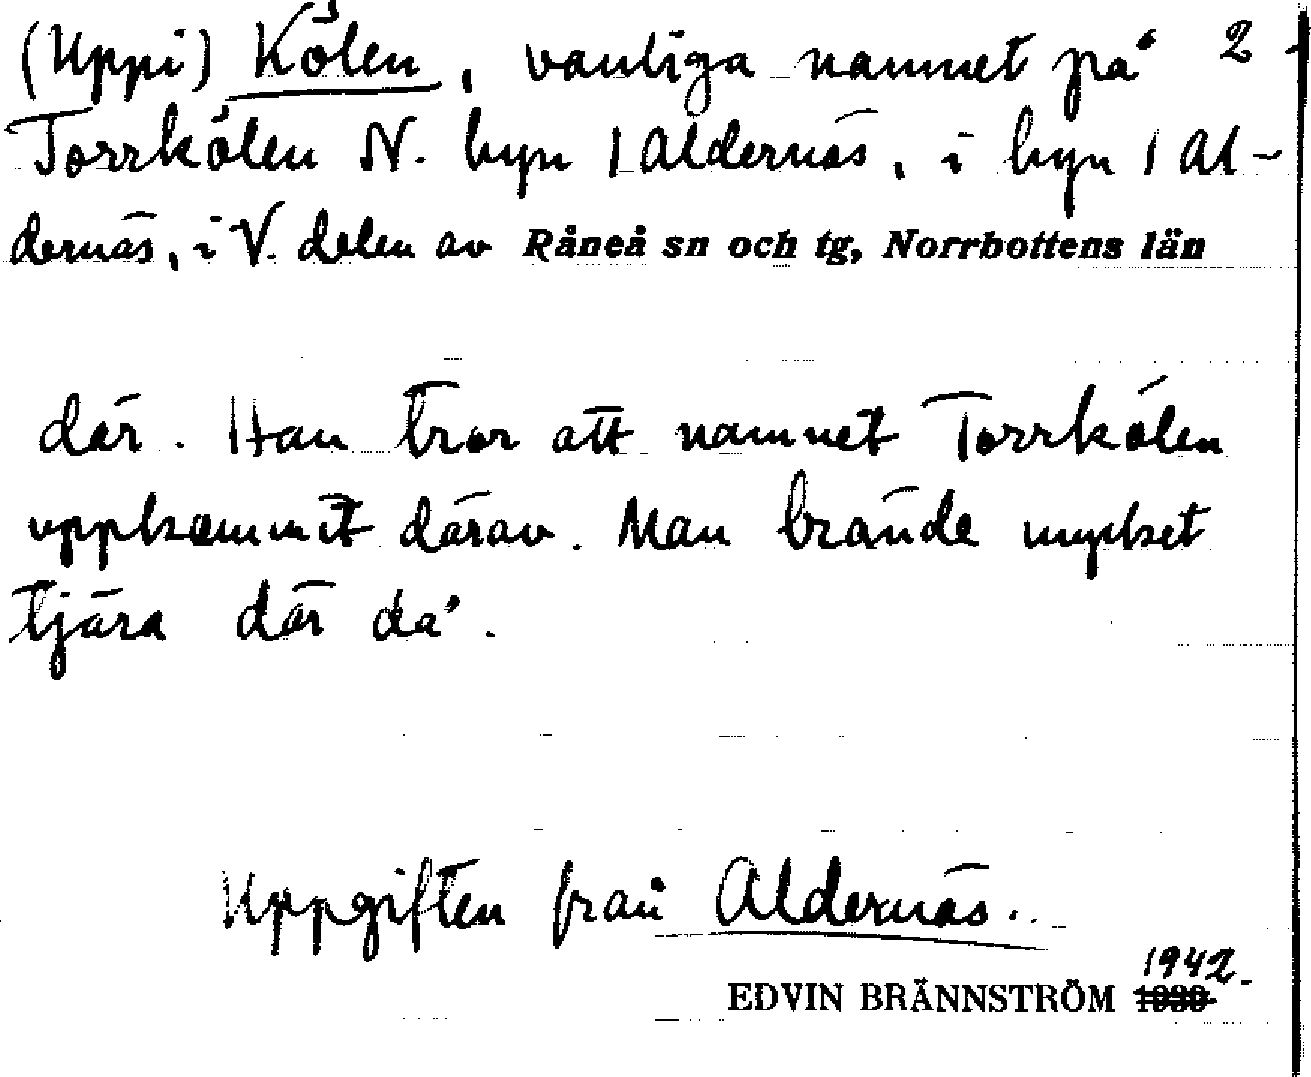 (Uppi) Kölen, vanliga namnet på 2
Torrkölen N. byn 1 Aldernäs, i byn 1 Al-
dernäs, i V. delen av Råneå sn och tg, Norrbottens län
där. Han tror att namnet Torrkölen
uppkommit därav. Man brände mycket
tjära där då.
Uppgiften från Aldernäs..
1942
EDVIN BRÄNNSTRÖM 1930